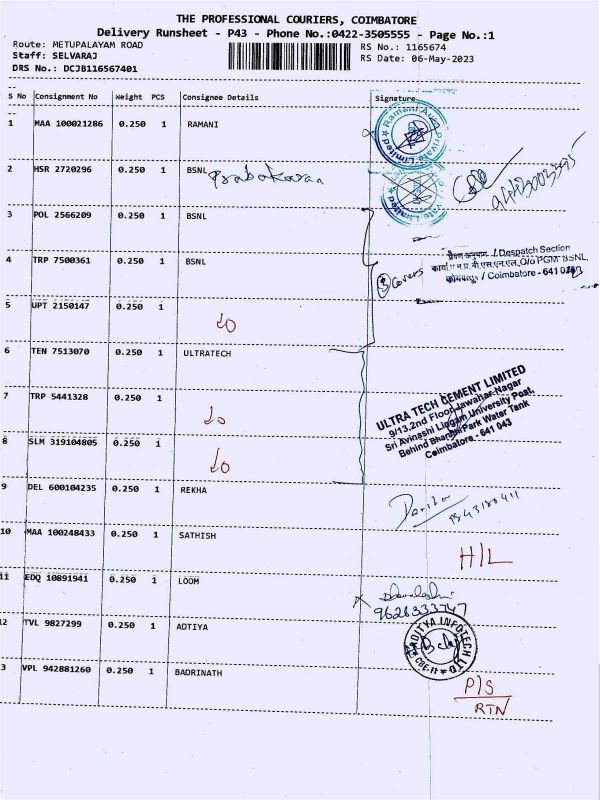 THE PROFESSIONAL COURIERS, COIMBATORE
Delivery Runsheet - P43 - Phone No.:0422-3505555 - Page No.:1
Route: METUPALAYAM ROAD RS No.: 1165674
Staff: SELVARAJ RS Date: 06-May-2023
DRS No.: DCJB116567401
S No Consignment No Weight PCS Consignee Details Signature
1 MAA 100021286 0.250 1 RAMANI
Private Limited
2 HSR 2720296 0.250 1 BSNL Prabakaran
Private Limited
3 POL 2566209 0.250 1 BSNL
4 TRP 7500361 0.250 1 BSNL
3 Covers
प्रेषण अनुभाग / Despatch Section
O/o PGM BSNL,
कोयंबत्तूर / Coimbatore - 641
5 UPT 2150147 0.250 1
6 TEN 7513070 0.250 1 ULTRATECH
7 TRP 5441328 0.250 1
ULTRA TECH CEMENT LIMITED
9/13,2nd Floor, Jawahar Nagar
Sri Avinashi Lingam University Post,
Behind Bharathi Park Water Tank
Coimbatore - 641 043
8 SLM 319104805 0.250 1
9 DEL 600104235 0.250 1 REKHA
10 MAA 100248433 0.250 1 SATHISH
H/L
11 EDQ 10891941 0.250 1 LOOM
9628333747
12 TVL 9827299 0.250 1 ADTIYA
ADITYA INFOTECH LTD
13 VPL 942881260 0.250 1 BADRINATH
P/S
RTN